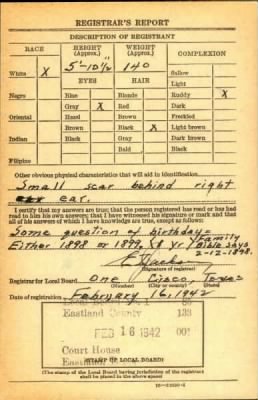 REGISTRAR'S REPORT
DESCRIPTION OF REGISTRANT
RACE HEIGHT (Approx.) WEIGHT (Approx.) COMPLEXION
White X 5'-10½" 140 Sallow
EYES HAIR Light
Negro Blue Blonde Ruddy X
Gray X Red Dark
Oriental Hazel Brown Freckled
Brown Black X Light brown
Indian Black Gray Dark brown
Bald Black
Filipino
Other obvious physical characteristics that will aid in identification
Small scar behind right
ear.
I certify that my answers are true; that the person registered has read or has had
read to him his own answers; that I have witnessed his signature or mark and that
all of his answers of which I have knowledge are true, except as follows:
Some question of birthday—
Either 1898 or 1899, Family
Bible says
2-12-1898.
(Signature of registrar)
Registrar for Local Board One Cisco, Texas
(Number) (City or county) (State)
Date of registration February 16, 1942
Eastland County 133
FEB 16 1942 001
Court House
(STAMP OF LOCAL BOARD)
(The stamp of the Local Board having jurisdiction of the registrant
shall be placed in the above space)